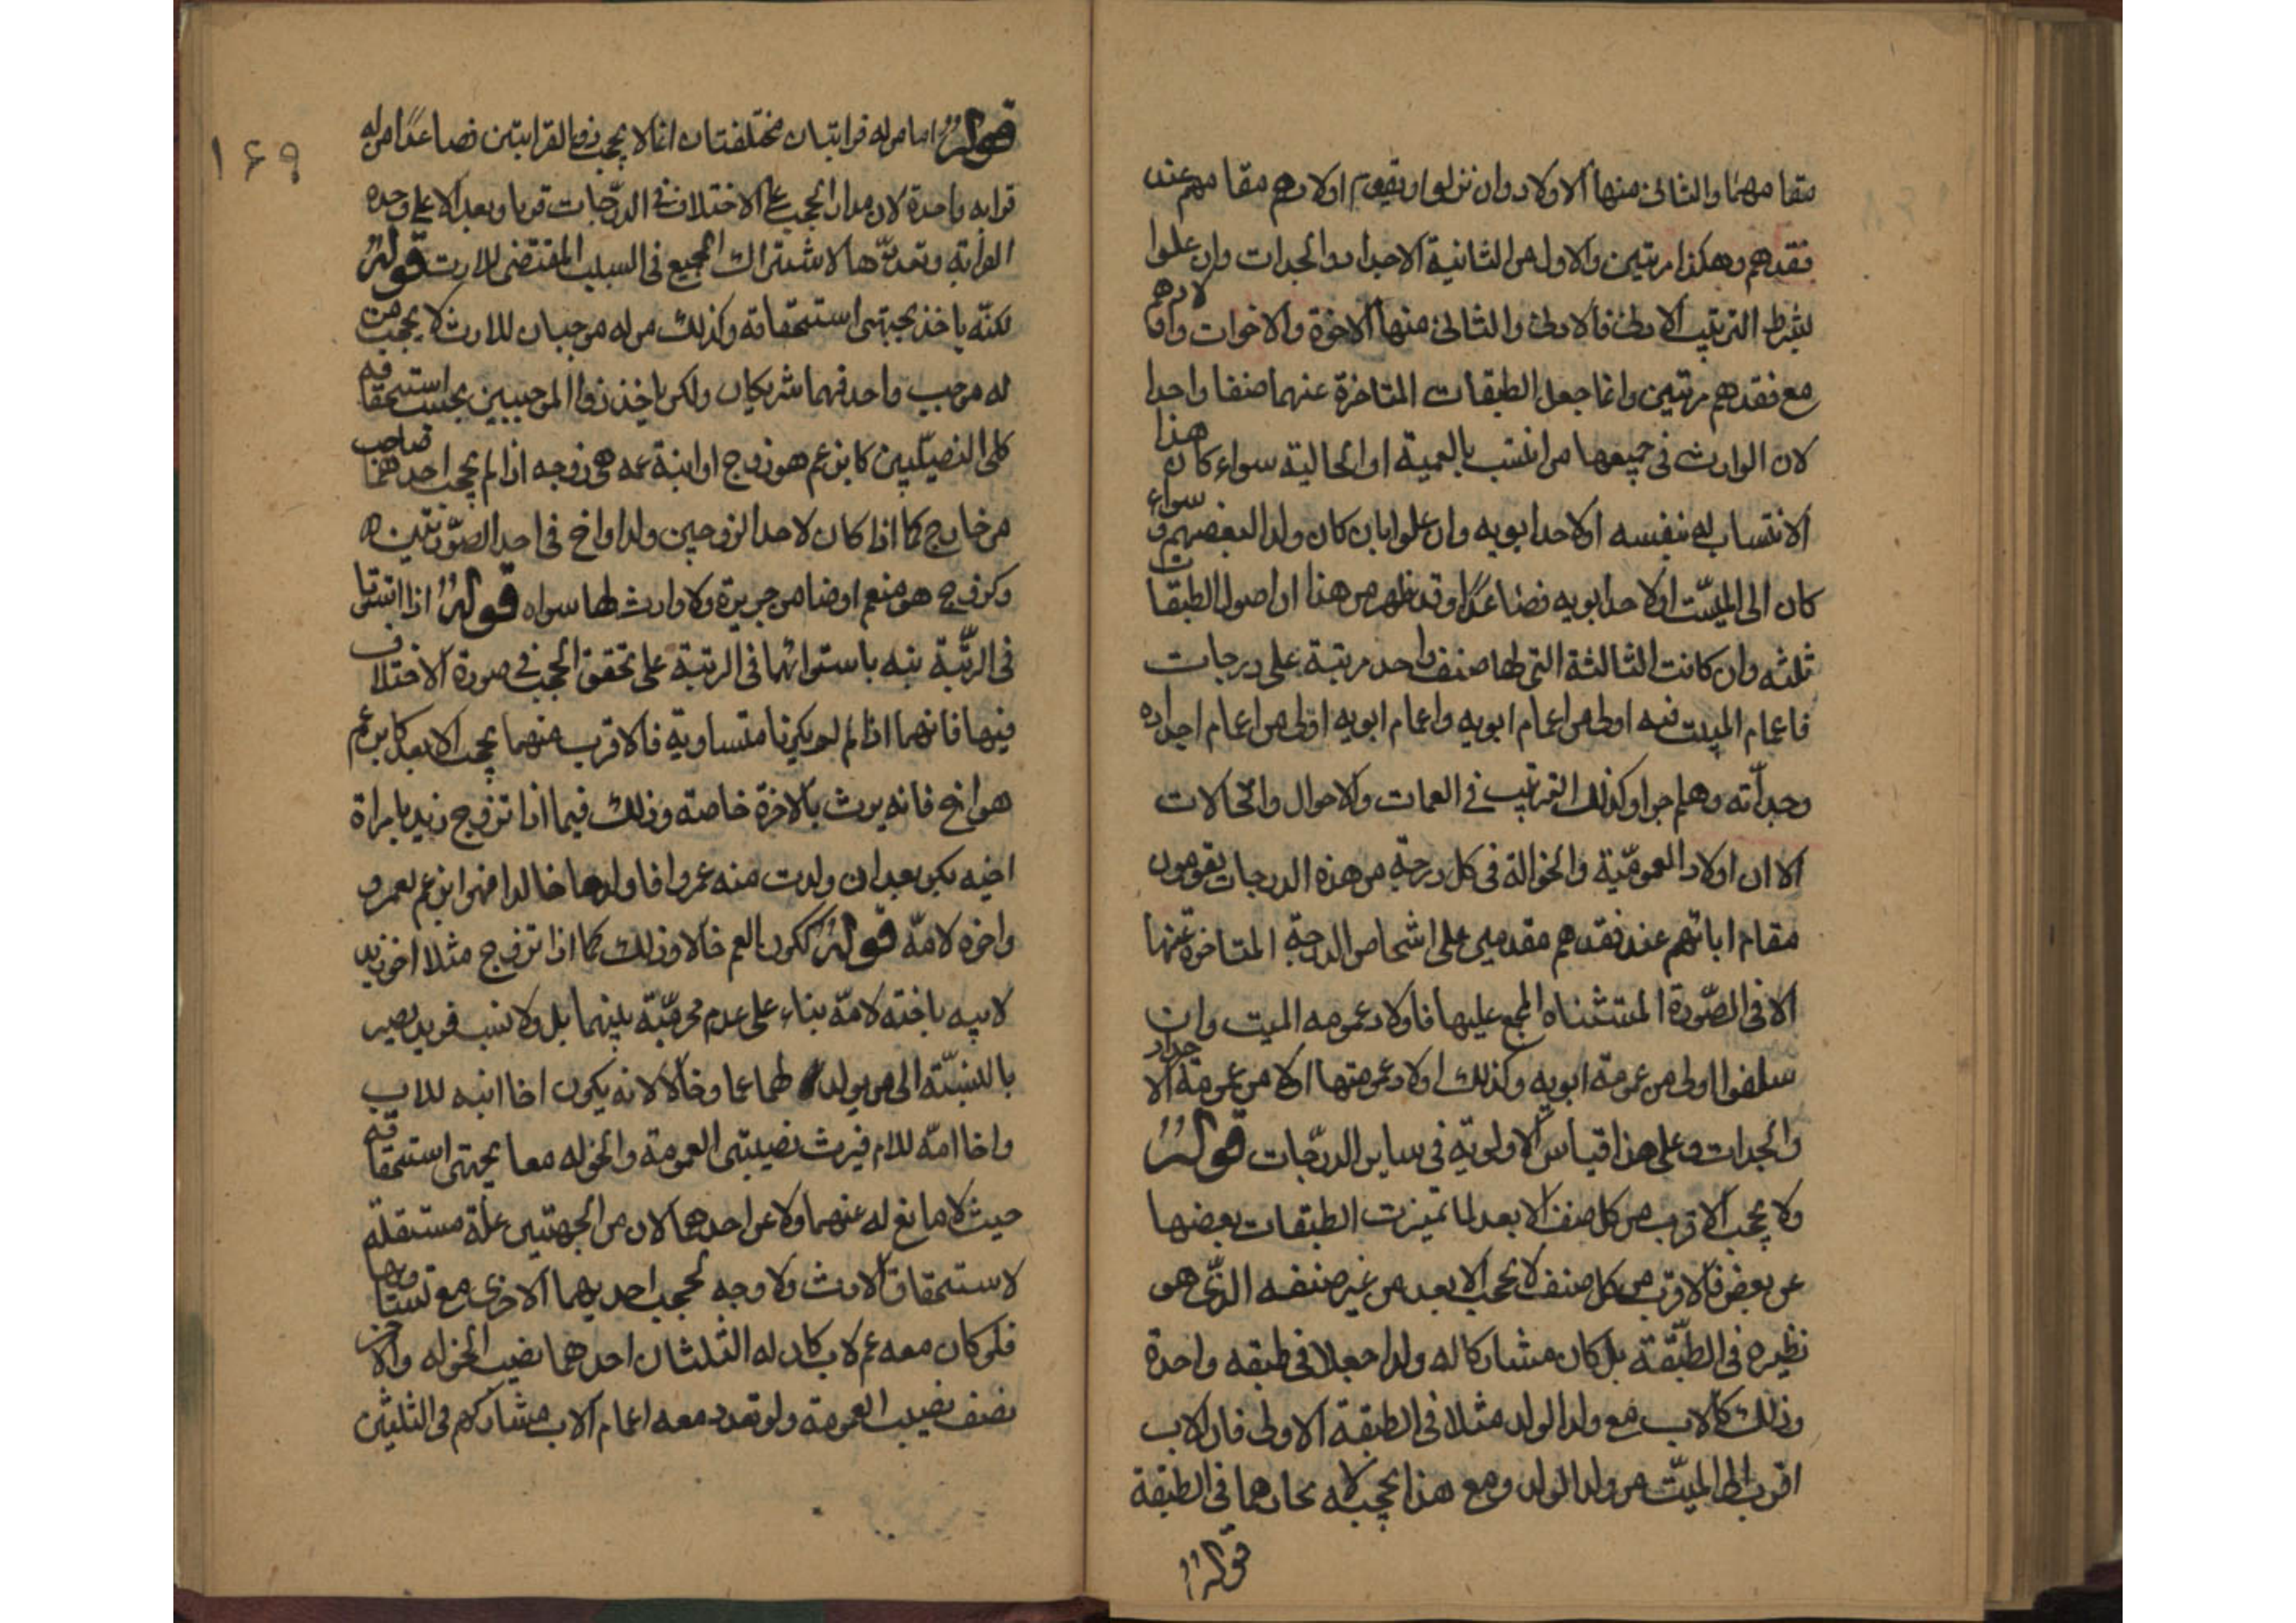 مقامهما والثانی منها الاولاد وان نزلوا ویقوم اولادهم مقامهم عند
فقدهم وهکذا مرتبین والاول من الثانیة الاجداد والجدات وان علوا
بشرط الترتیب الادنی فالادنی والثانی منها الاخوة والاخوات واولادهم
مع فقدهم مرتبین وانما جعل الطبقات المتاخرة عنهما صنفا واحدا
لان الوارث فی جمیعها من انتسب بالعمیة او الخالیة سواء کان هذا
الانتساب له بنفسه او لاحد ابویه وان علوا بان کان ولدا لبعضهم وسواء
کان الی المیّت او لاحد ابویه فصاعدًا وقد ظهر من هذا ان اصول الطبقات
ثلثه وان کانت الثالثة التی لها صنف واحد مرتبة علی درجات
فاعمام المیت فیه اولی من اعمام ابویه واعمام ابویه اولی من اعمام اجداده
وجداته وهلم جرا وکذلک الترتیب فی العمات والاخوال والخالات
الا ان اولاد العمومّیة والخوالة فی کل درجة من هذه الدرجات یقومون
مقام ابائهم عند فقدهم مقدمین علی اشخاص الدرجة المتاخرة عنها
الا فی الصّورة المستثناه المجمع علیها فاولاد عمومه المیت وان
سلفوا اولی من عمومة ابویه وکذلک اولاد عمومتها اولا من عمومة الاجداد
والجدات وعلی هذا قیاس الاولویّة فی سایر الدرّجات قوله
ولا یحجب الاقرب من کل صنف الابعد لما تمیزت الطبقات بعضها
عن بعض فالاقرب من کل صنف لا یحجب الابعد من غیر صنفه الذّی هو
نظیره فی الطّبقة بل کان مشارکا له ولذا جعلا فی طبقه واحدة
وذلک کالاب مع ولد الولد مثلا فی الطبقة الاولی فان الاب
اقرب الی المیّت من ولد الولد ومع هذا لا یحجبه لاتحادهما فی الطبقة
قوله
۱۶۹
قوله اما من له قرابتان مختلفتان انما لا یحجب ذو القرابتین فصاعدًا من له
قرابه واحدة لان مدار الحجب علی الاختلاف فی الدرّجات قربا وبعدا لا علی وحده
القرابة وتعدّدها لاشتراک الجمیع فی السبب المقتضی للارث قوله
لکنّه یاخذ بجهتی استحقاقه وکذلک من له موجبان للارث لا یحجب من
له موجب واحد فهما شریکان ولکن یاخذ ذو الموجبین بحسب استحقاقه
کلی النصیّبین کابن عم هو زوج او ابنة عمه هی زوجه اذا لم یحجب احدهما صاحب
من خارج کما اذا کان لاحد الزوجین ولد او اخ فی احد الصّورتین
وکزوج هو منعم او ضامن جریرة ولا وارث لها سواه قوله اذا استوتا
فی الرتّبة نبه باستوائهما فی الرتبة علی تحقق الحجب فی صورة الاختلاف
فیها فانهما اذا لم یکونا متساویة فالاقرب منهما یحجب الابعد کابن عم
هو اخ فانه یرث بالاخوة خاصته وذلک فیما اذا تزوج زید بامراة
اخیه بکر بعد ان ولدت منه عمروا فاولدها خالدا فهو ابن عم لعمرو
واخوه لامّه قوله ککون العم خالا وذلک کما اذا تزوج مثلا اخو زید
لابیه باخته لامّه بناء علی عدم محرمیّة بینهما بل ولا نسب فزید یصیر
بالنسبّة الی من یولد لهما عما وخالا لانه یکون اخا ابیه للاب
واخا امّه للام فیرث نصیبتی العمومة والخوله معا بجهتی استحقاقه
حیث لا مانع له عنهما ولا عن احدهما لان من الجهتین علة مستقلة
لاستحقاق الارث ولا وجه لحجب احدیهما الاخری مع تساویهما
فلو کان معه عم لاب کان له الثلثان احدهما نصیب الخوله والاخر
نصف نصیب العمومة ولو تعدد معه اعمام الاب مشارکهم فی الثلثین